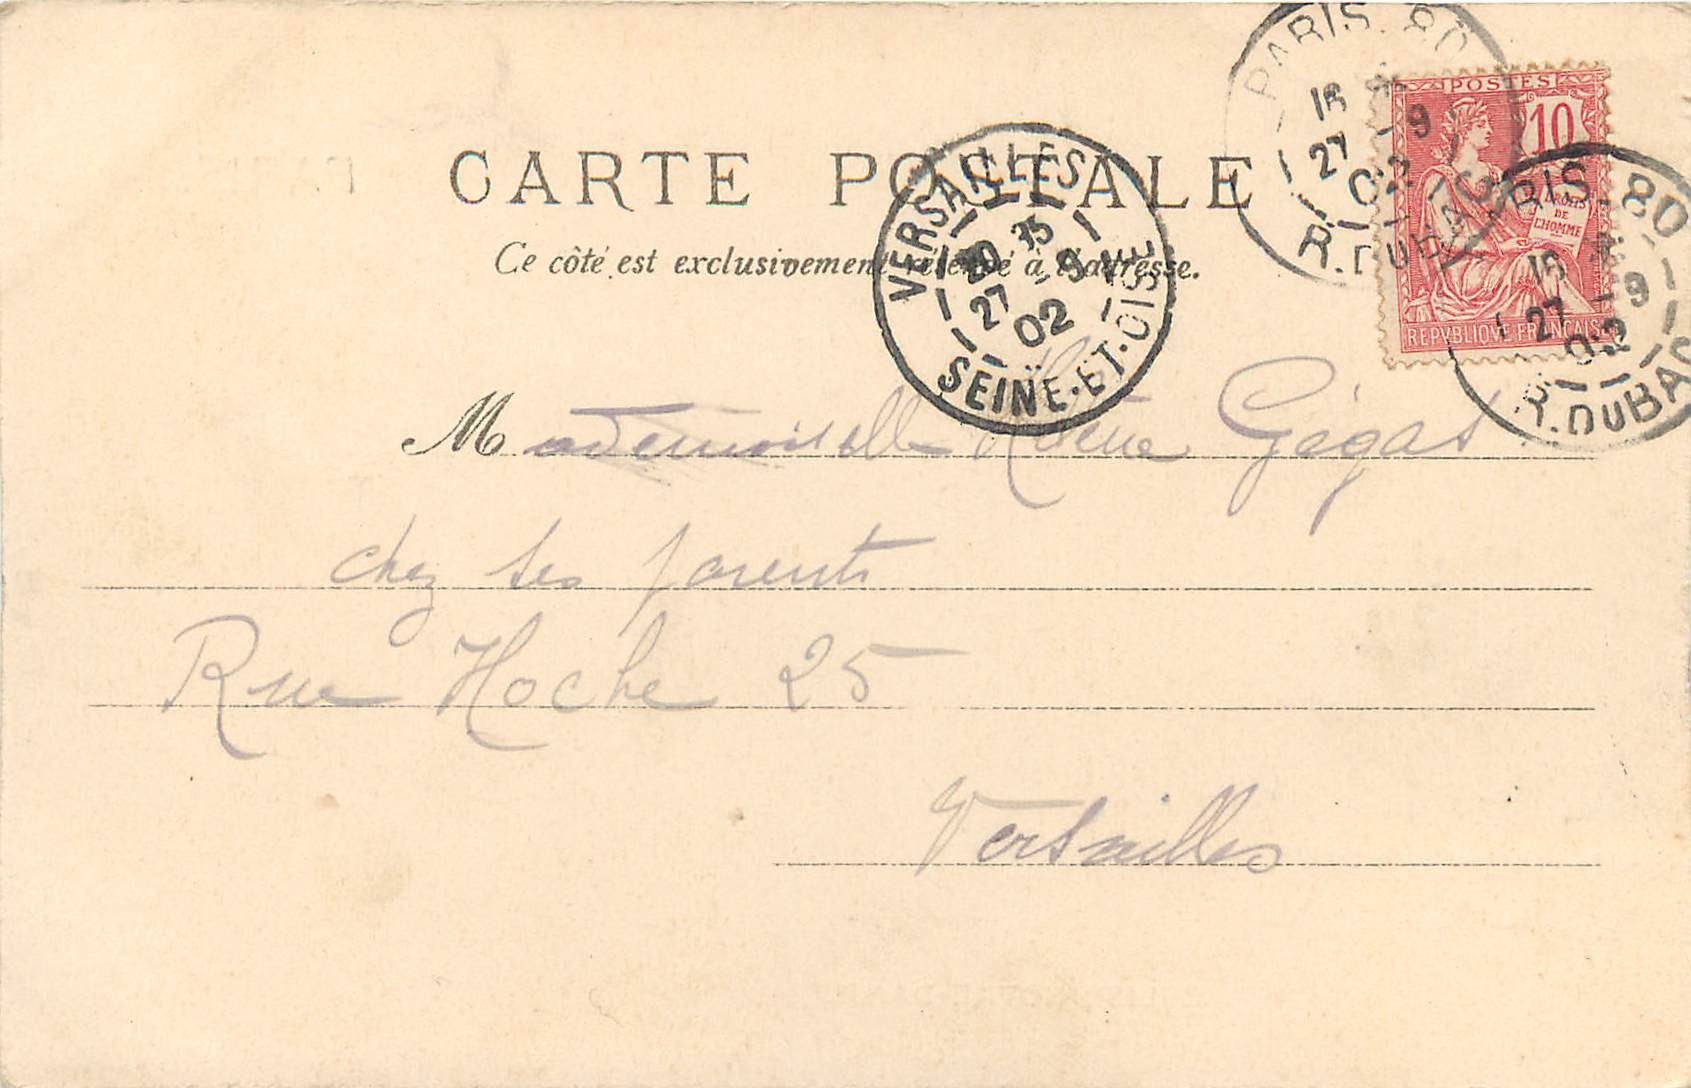 PARIS. 80
16
27 - 9
02
R. DU BAC
POSTES
10
DROITS
DE
L'HOMME
REPVBLIQVE FRANÇAISE
PARIS - 80
16
27 - 9
02
R. DU BAC
CARTE POSTALE
VERSAILLES
20 35
27 - 9
02
SEINE-ET-OISE
Ce côté est exclusivement réservé à l'adresse.
Mademoiselle Hélène Gégat
chez ses parents
Rue Hoche 25
Versailles